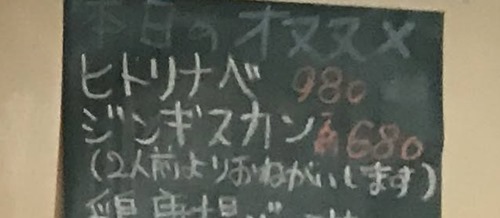 本日のオススメ
ヒトリナベ 980
ジンギスカン 680
(2人前よりおねがいします)